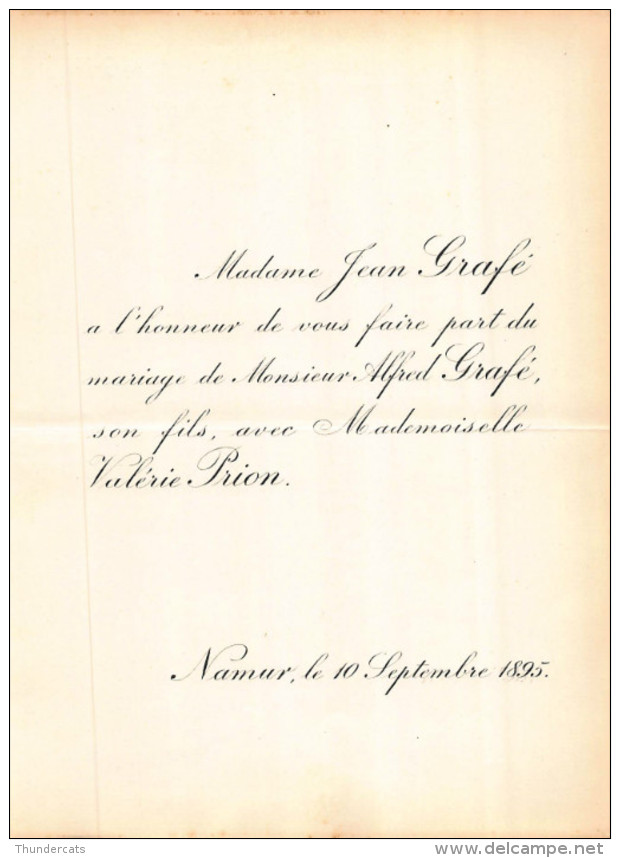 Madame Jean Grafé
a l'honneur de vous faire part du
mariage de Monsieur Alfred Grafé,
son fils, avec Mademoiselle
Valérie Prion.
Namur, le 10 Septembre 1895.
Thundercats
delcampe.net